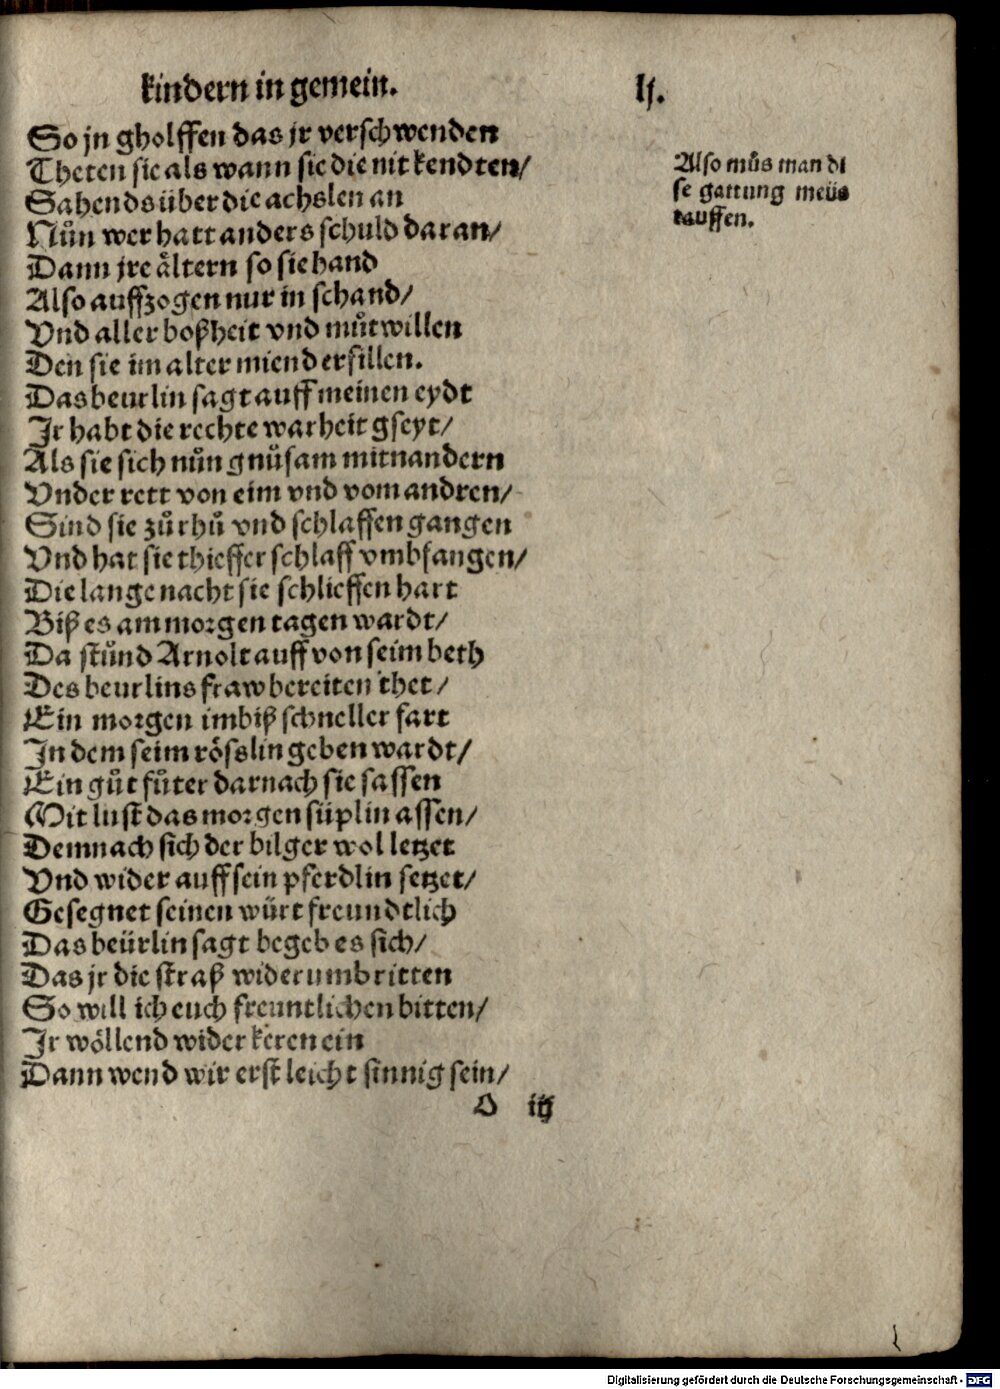 kindern in gemein. lj.
So jn gholffen das jr verschwenden
Theten sie als wann sie die nit kendten/
Sahends über die achslen an
Nůn wer hatt anders schuld daran/
Dann jre åltern so sie hand
Also auffzogen nur in schand/
Vnd aller boßheit vnd můtwillen
Den sie im alter miend ersillen.
Das beurlin sagt auff meinen eydt
Ir habt die rechte warheit gseyt/
Als sie sich nůn gnůsam mitnandern
Vnder rett von eim vnd vom andren/
Sind sie zů rhů vnd schlaffen gangen
Vnd hat sie thieffer schlaff vmbfangen/
Die lange nacht sie schlieffen hart
Biß es am morgen tagen wardt/
Da stůnd Arnolt auff von seim beth
Des beurlins fraw bereiten thet/
Ein morgen imbiß schneller fart
In dem seim rösslin geben wardt/
Ein gůt fůter darnach sie sassen
Mit lust das morgen süplin assen/
Demnach sich der bilger wol letzet
Vnd wider auff sein pferdlin setzet/
Gesegnet seinen würt freundtlich
Das beürlin sagt begeb es sich/
Das jr die straß widerumb ritten
So will ich euch freuntlichen bitten/
Ir wöllend wider keren ein
Dann wend wir erst leicht sinnig sein/
Also můs man di
se gattung meüs
tauffen.
iij
Digitalisierung gefördert durch die Deutsche Forschungsgemeinschaft - DFG